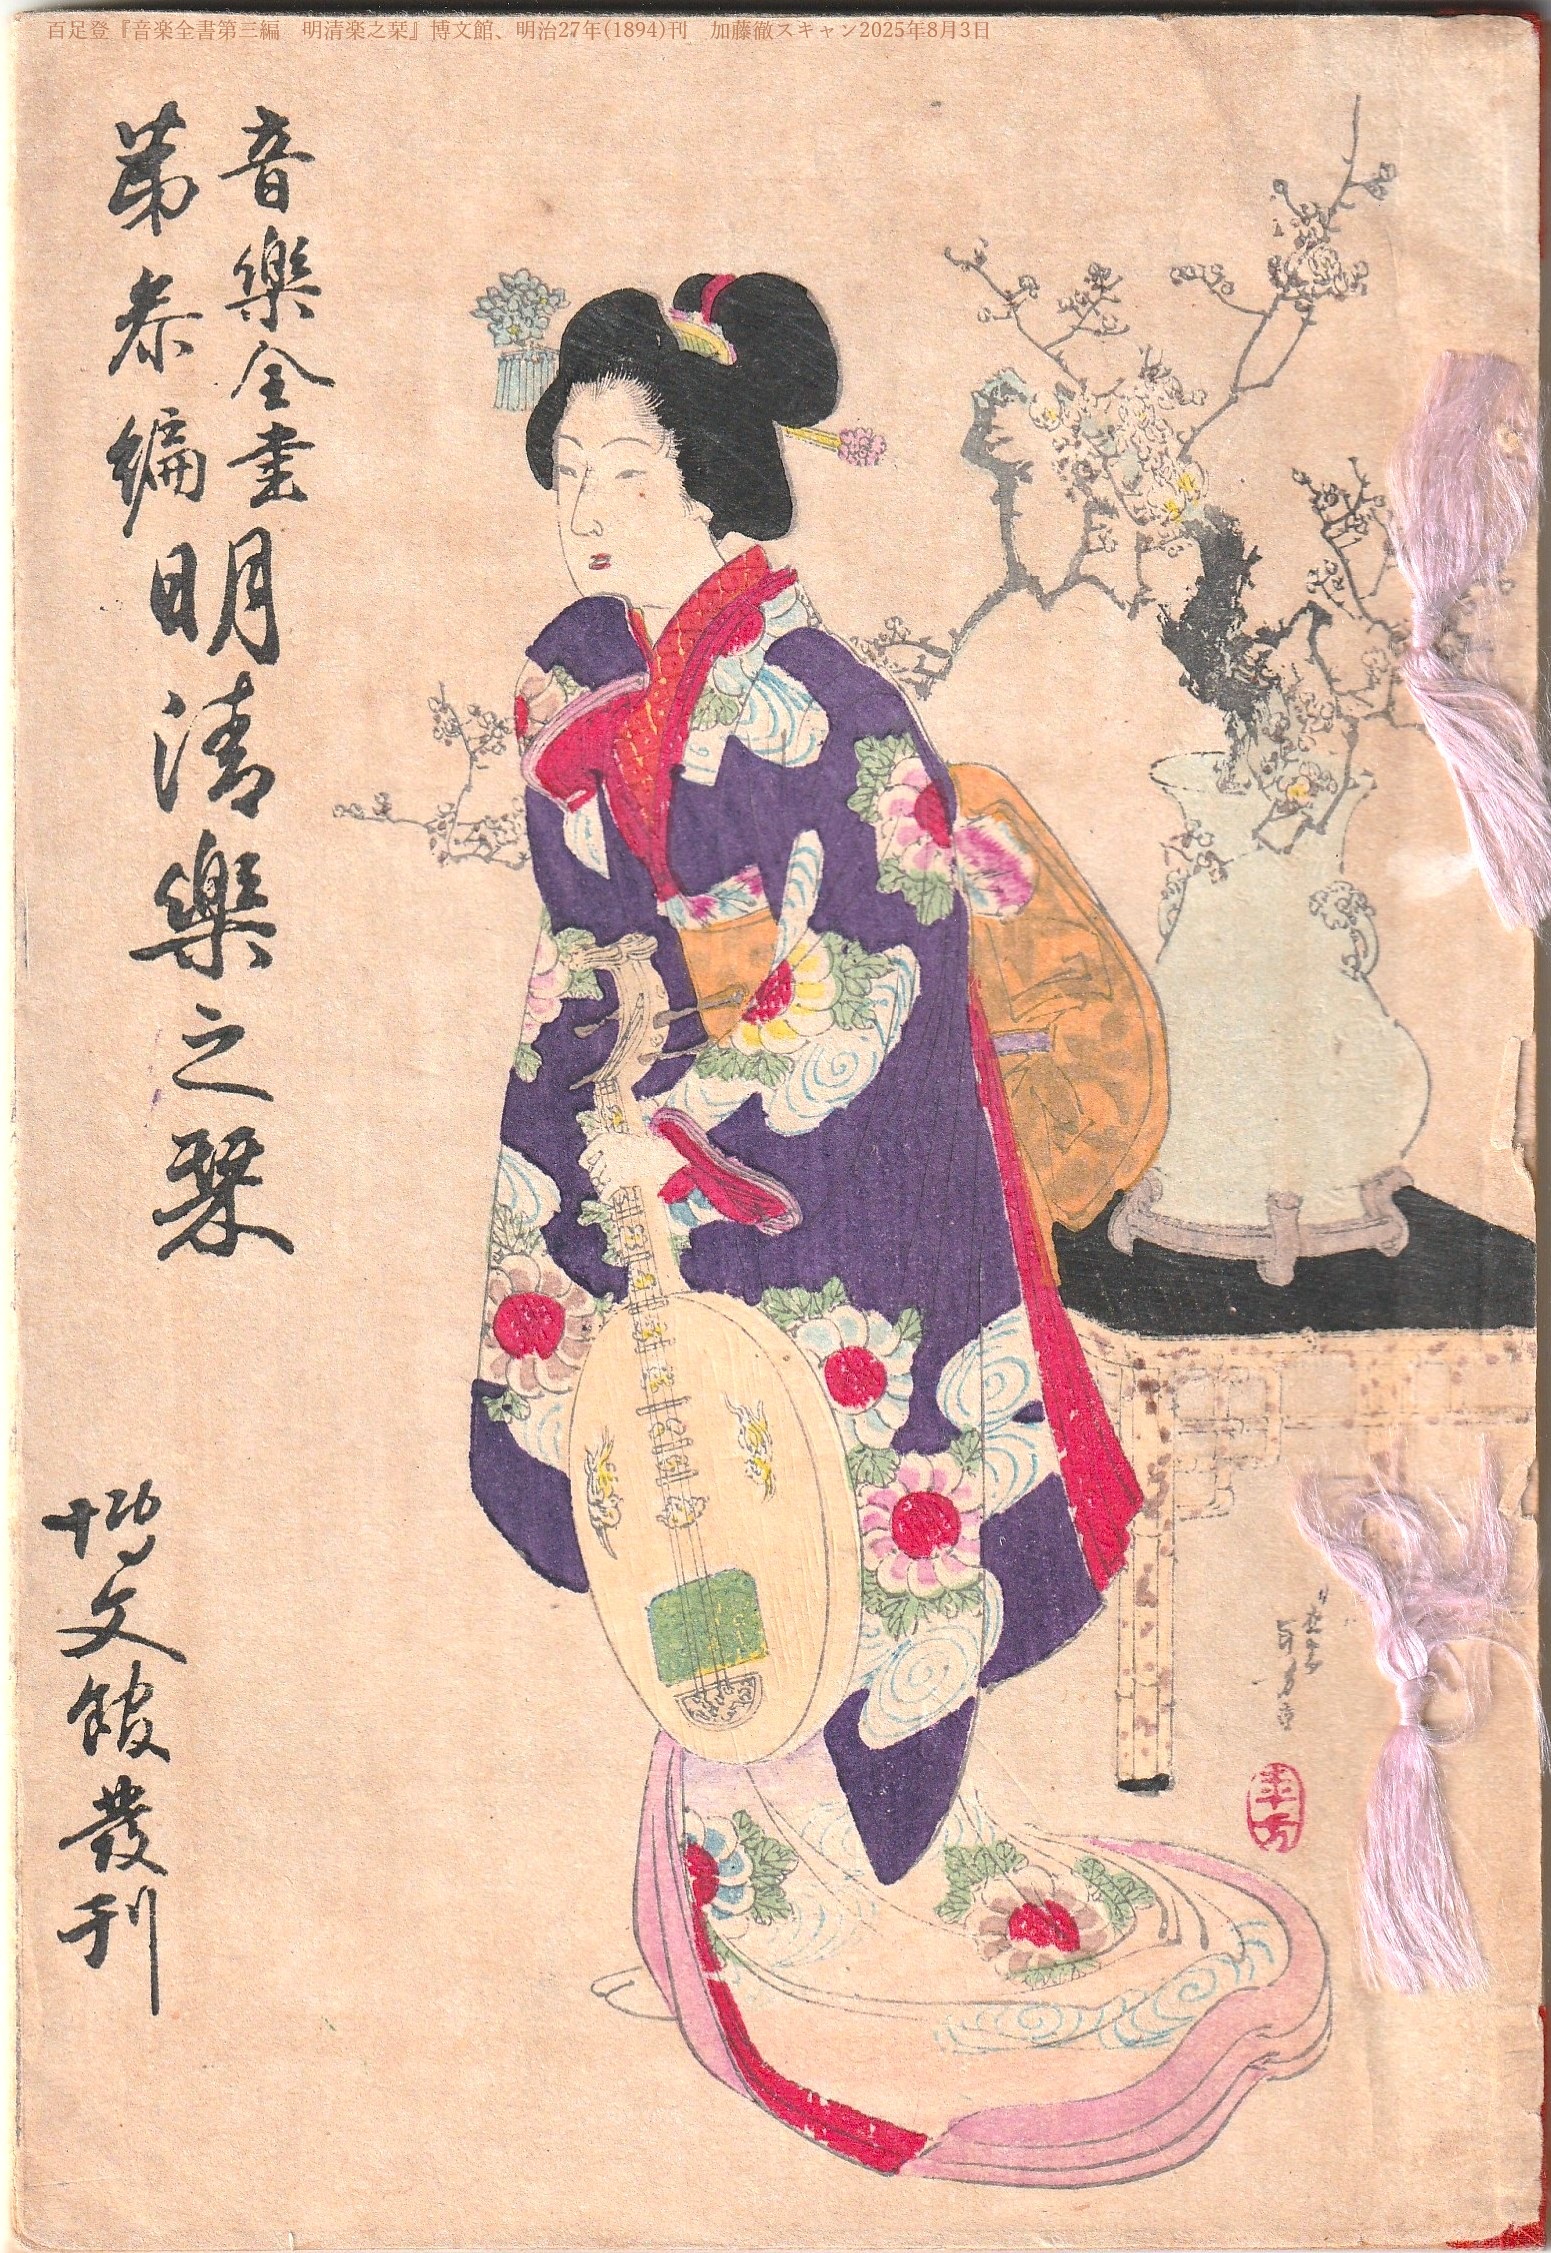 百足登『音楽全書第三編　明清楽之栞』博文館、明治27年(1894)刊　加藤徹スキャン2025年8月3日
音樂全書
第叅編
明清樂之栞
博文館發刊